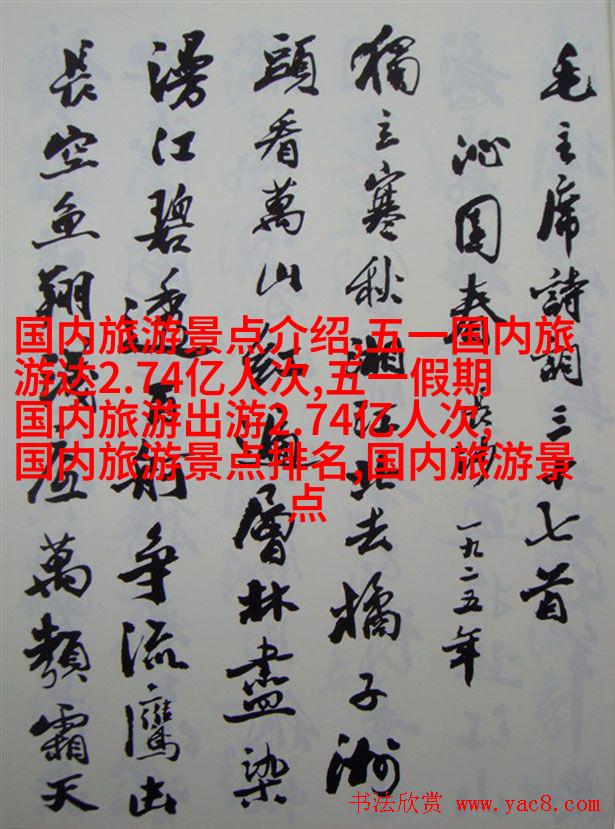 毛主席詩詞三十七首
沁园春 長沙 一九二五年
獨立寒秋湘江北去橘子洲
頭看萬山紅遍層林盡染
漫江碧透百舸争流鷹击
長空魚翔淺底萬類霜天
国内旅游景点介绍,五一国内旅
游达2.74亿人次,五一假期
国内旅游出游2.74亿人次,
国内旅游景点排名,国内旅游景
点
书法欣赏 www.yac8.com